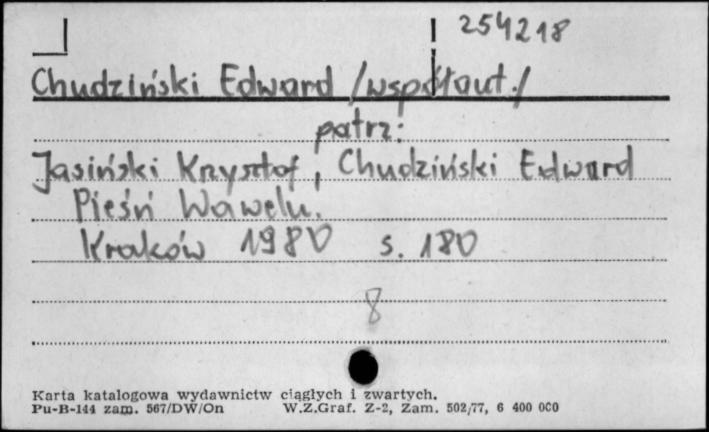 254218
Chudziński Edward /współaut./
patrz:
Jasiński Krzysztof, Chudziński Edward
Pieśń Wawelu.
Kraków 1980 s. 180
8
Karta katalogowa wydawnictw ciągłych i zwartych.
Pu-B-144 zam. 567/DW/On W.Z.Graf. Z-2, Zam. 502/77, 6 400 000